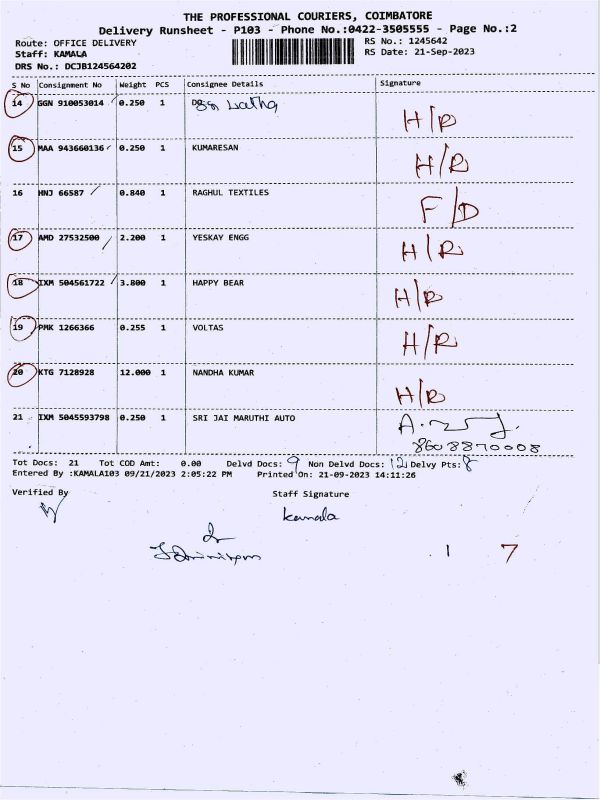 THE PROFESSIONAL COURIERS, COIMBATORE
Delivery Runsheet - P103 - Phone No.:0422-3505555 - Page No.:2
Route: OFFICE DELIVERY RS No.: 1245642
Staff: KAMALA RS Date: 21-Sep-2023
DRS No.: DCJB124564202
S No Consignment No Weight PCS Consignee Details Signature
14 GGN 910053014 0.250 1 Latha H/R
15 MAA 943660136 0.250 1 KUMARESAN H/R
16 HNJ 66587 0.840 1 RAGHUL TEXTILES F/D
17 AMD 27532500 2.200 1 YESKAY ENGG H/R
18 IXM 504561722 3.800 1 HAPPY BEAR H/R
19 PMK 1266366 0.255 1 VOLTAS H/R
20 KTG 7128928 12.000 1 NANDHA KUMAR H/R
21 IXM 5045593798 0.250 1 SRI JAI MARUTHI AUTO
8608870008
Tot Docs: 21 Tot COD Amt: 0.00 Delvd Docs: 9 Non Delvd Docs: 12 Delvy Pts: 8
Entered By :KAMALA103 09/21/2023 2:05:22 PM Printed On: 21-09-2023 14:11:26
Verified By Staff Signature
kamala
1 7